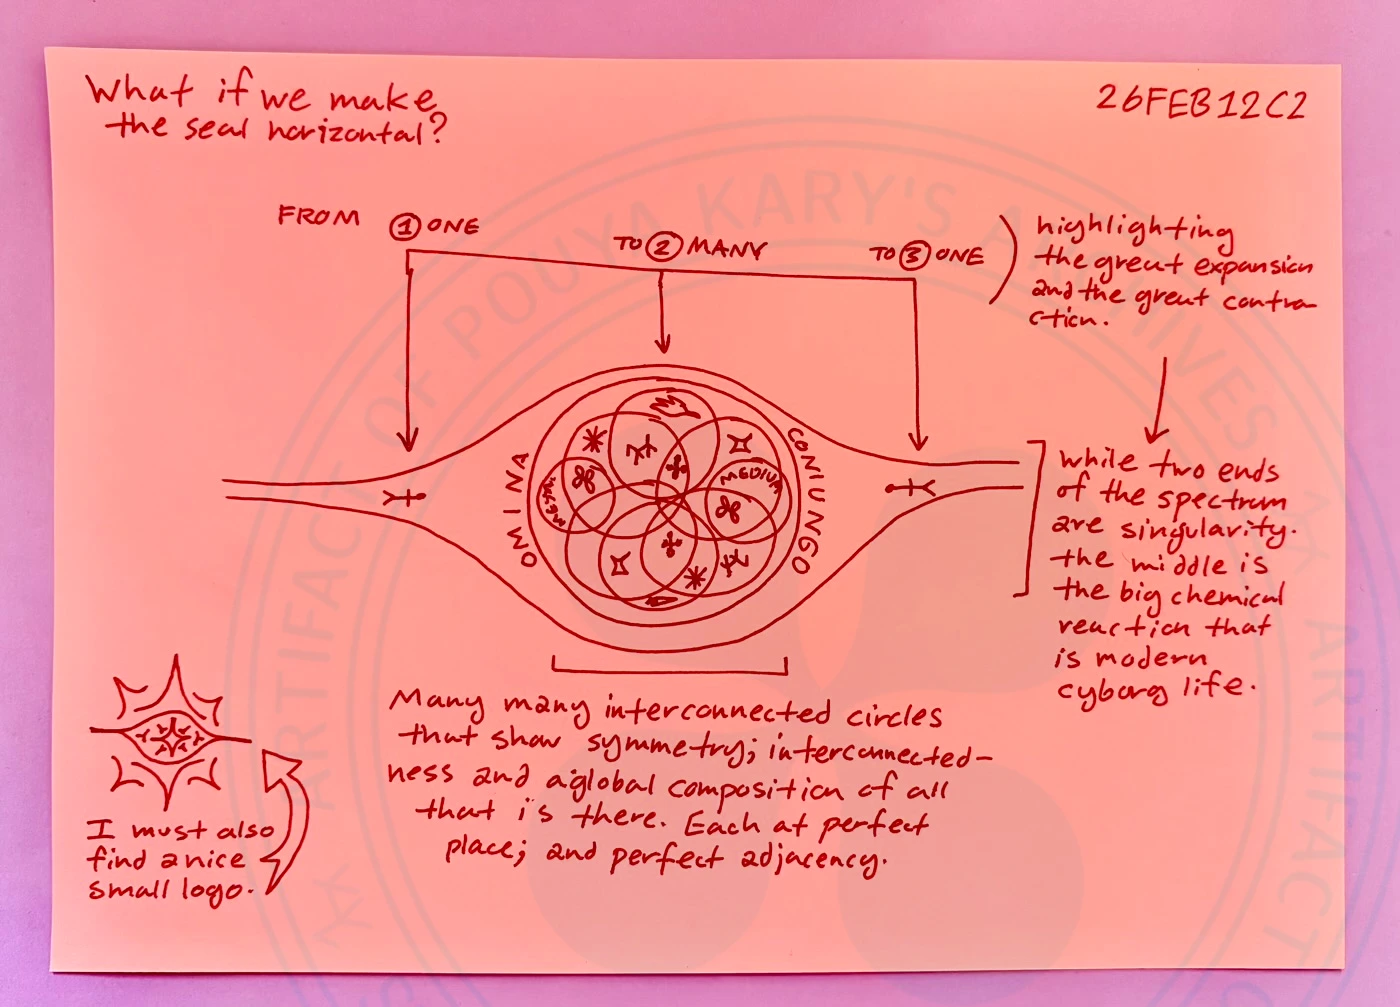 What if we make
the seal horizontal?
26FEB12C2
FROM 1 ONE
TO 2 MANY
TO 3 ONE
highlighting
the great expansion
and the great contra-
ction.
OMINA
CONIUNGO
MEDIUM
while two ends
of the spectrum
are singularity.
the middle is
the big chemical
reaction that
is modern
cyborg life.
Many many interconnected circles
that show symmetry; interconnected-
ness and a global composition of all
that is there. Each at perfect
place; and perfect adjacency.
I must also
find a nice
small logo.
ARTIFACT OF POUYA KARY'S ARCHIVES
ARTIFACT